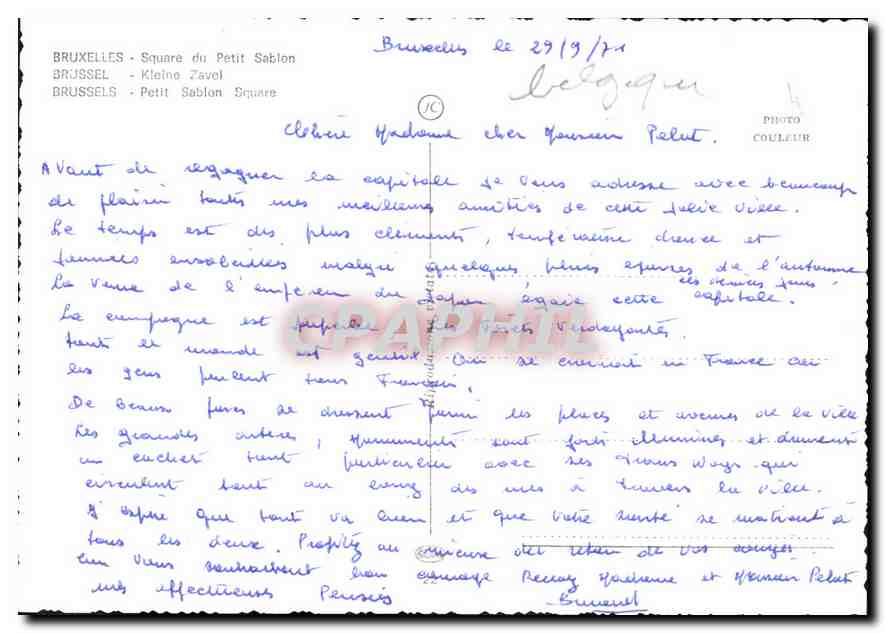 BRUXELLES - Square du Petit Sablon
BRUSSEL - Kleine Zavel
BRUSSELS - Petit Sablon Square
Bruxelles le 29/9/71
belgique
JC
PHOTO
COULEUR
Madame cher Monsieur Pelut.
Avant de regagner la capitale je vous adresse avec beaucoup
de plaisir toutes mes meilleures amitiés de cette jolie ville.
Le temps est des plus cléments, température douce et
journées ensoleillées malgré quelques pluies éparses de l'automne
ces derniers jours.
La venue de l'empereur du Japon égaie cette capitale.
La campagne est superbe les forêts verdoyantes.
tout le monde est gentil. On se croirait en France car
les gens parlent tous Français.
De beaux parcs se dressent parmi les places et avenues de la ville
Les grandes artères, Monuments sont forts illuminés et donnent
un cachet tout particulier avec ses Tramways qui
circulent tout au long des rues à travers la ville.
J'espère que tout va bien et que votre santé se maintient à
tous les deux. Profitez au mieux del de vos congés.
En vous souhaitant bon courage Recevez Madame et Monsieur Pelut
mes affectueuses Pensées
CPAPHIL